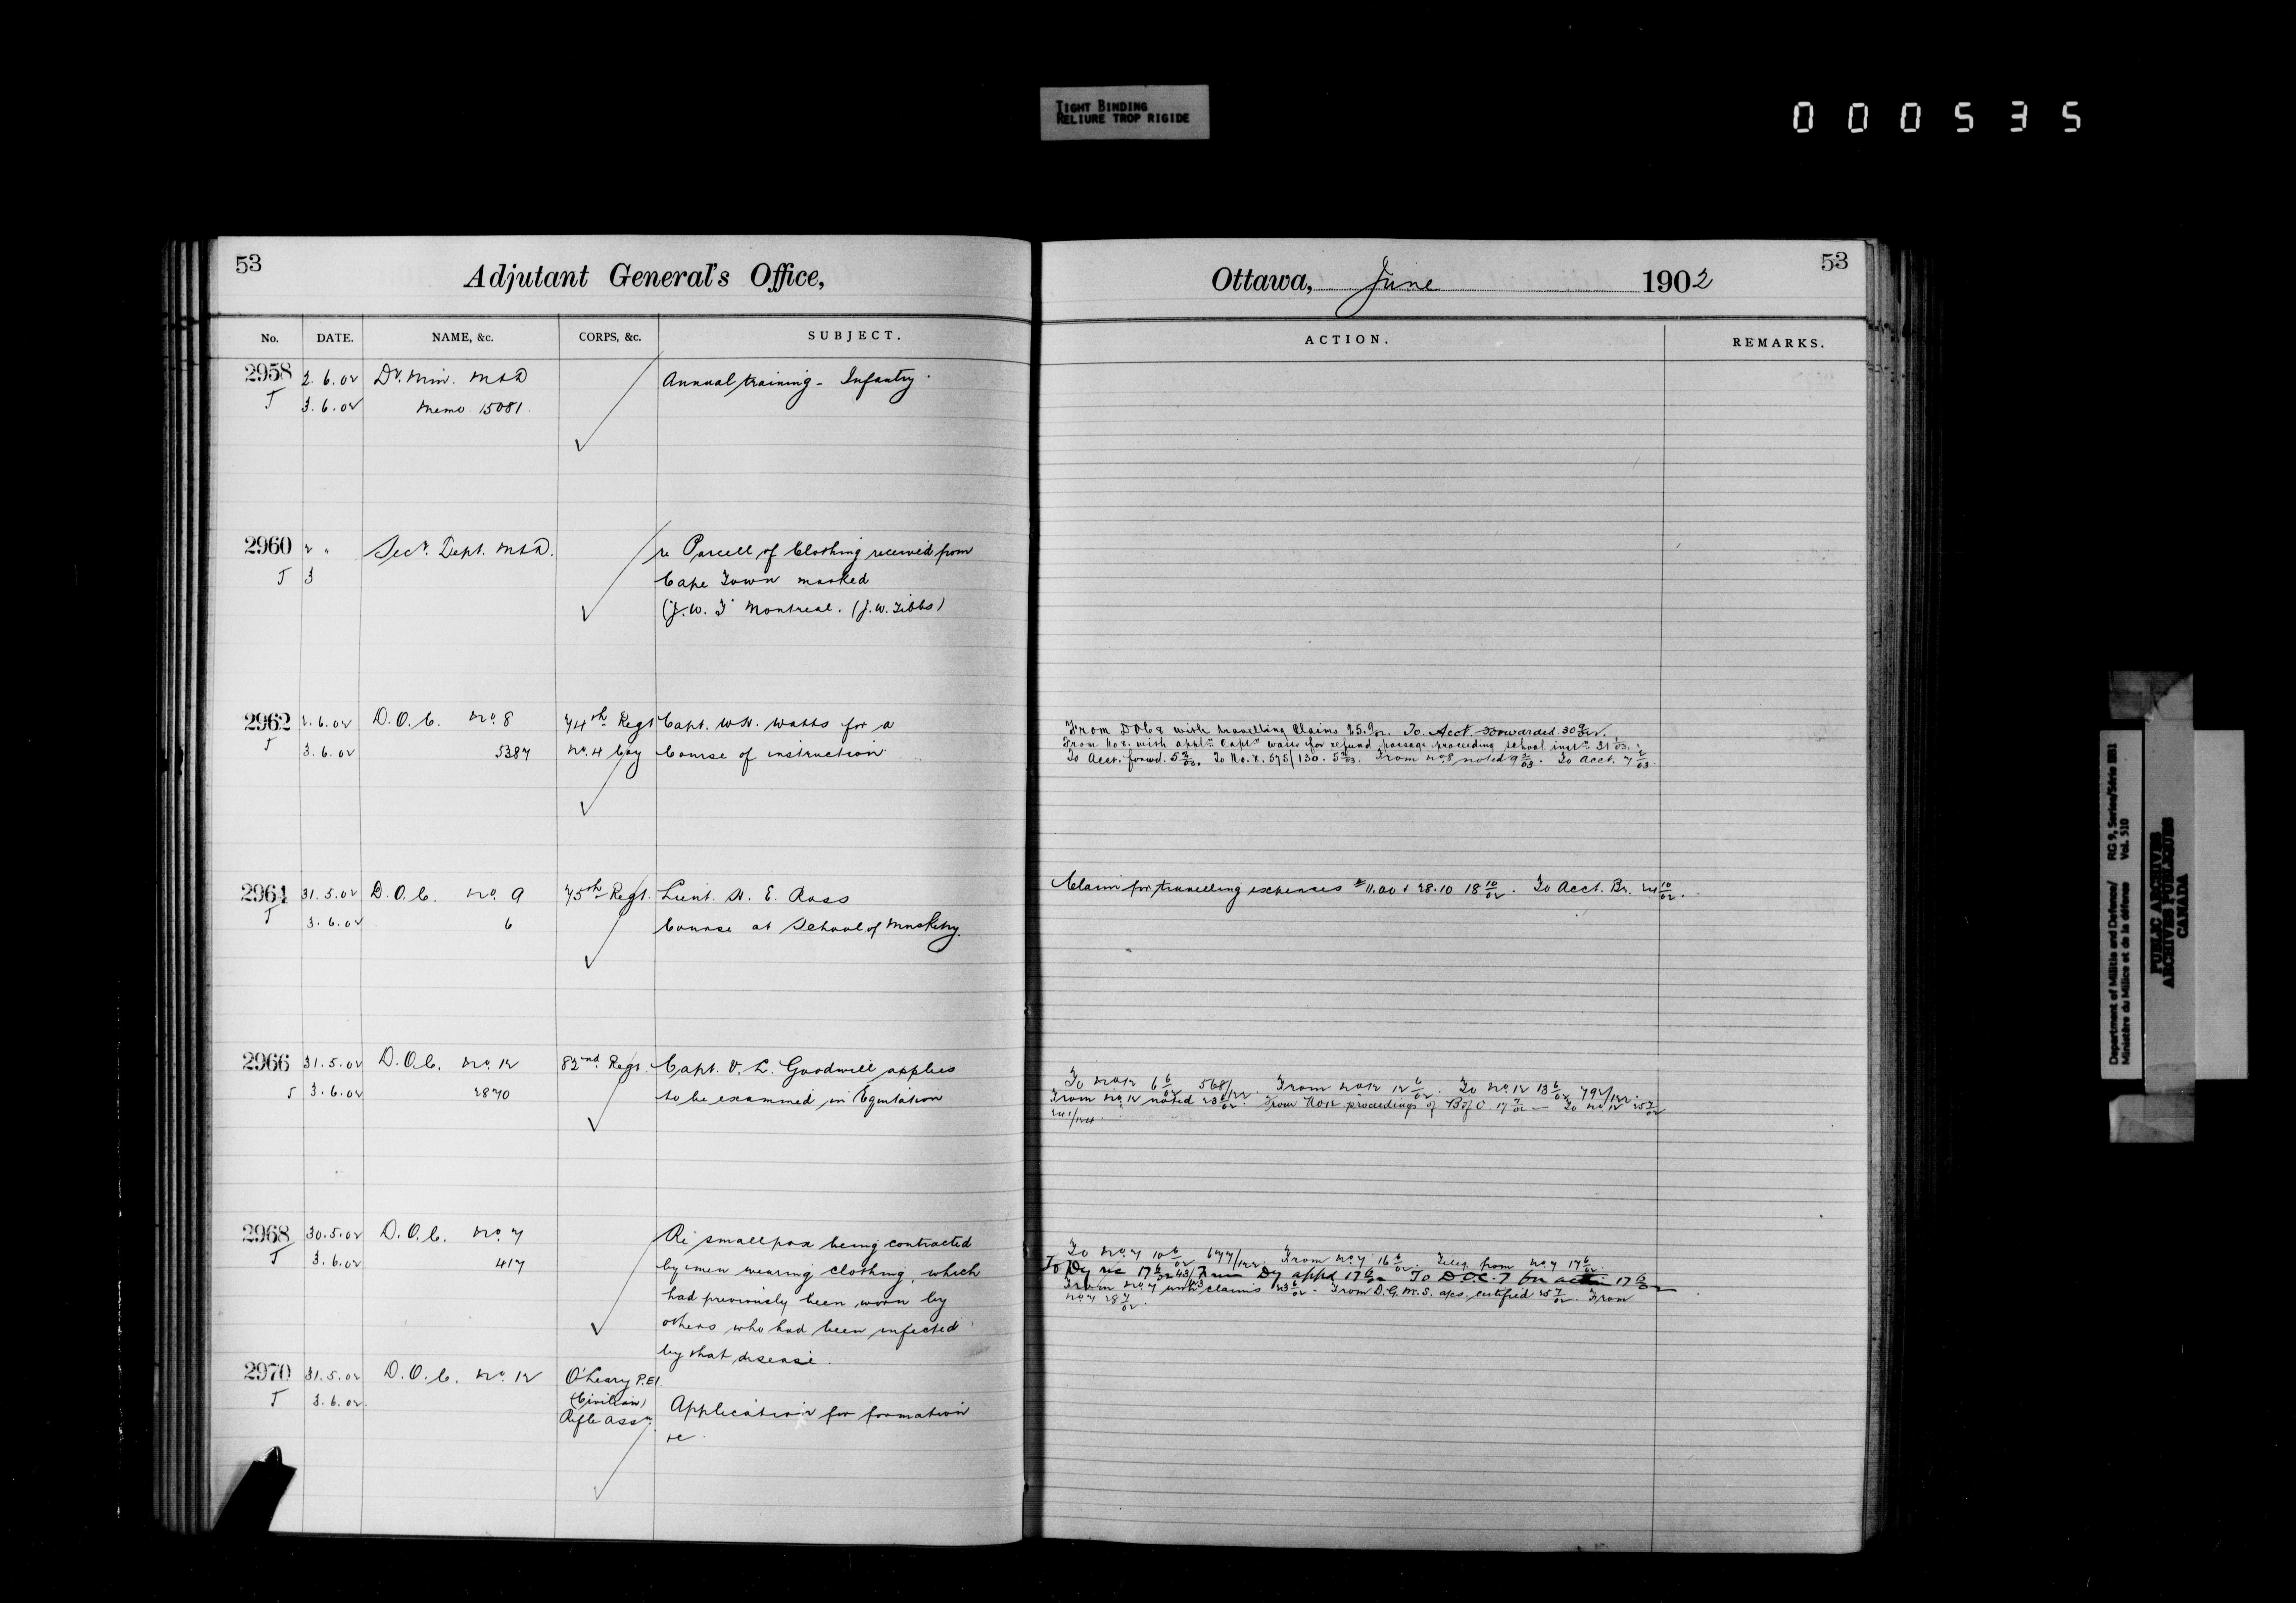 TIGHT BINDING
RELIURE TROP RIGIDE
000535
53
Adjutant General's Office,
No. DATE. NAME, &c. CORPS, &c. SUBJECT.
2958 2.6.02 Dy. Min. M&D Annual training - Infantry.
J 3.6.02 Memo 15081.
2960 2 " Secy. Dept. M&D. re Parcell of Clothing received from
J 3 Cape Town marked
(J.W.T. Montreal. (J.W. Tibbs)
2962 2.6.02 D.O.C. No. 8 74th Regt Capt. W.H. Watts for a
J 3.6.02 5387 No. 4 Coy Course of instruction
2964 31.5.02 D.O.C. No. 9 75th Regt. Lieut. H. E. Ross
J 3.6.02 6 Course at School of Musketry.
2966 31.5.02 D.O.C. No. 12 82nd Regt. Capt. V. L. Goodwill applies
J 3.6.02 2870 to be examined in Equitation
2968 30.5.02 D.O.C. No. 7 Re smallpox being contracted
J 3.6.02 417 by men wearing clothing, which
had previously been worn by
others who had been infected
by that disease.
2970 31.5.02 D.O.C. No. 12 O'Leary P.E.I.
J 3.6.02. (Civilian)
Rifle Assn. Application for formation
&c.
53
Ottawa, June 1902
ACTION. REMARKS.
From DOC 8 with travelling Claims 25.9/02. To Acct. forwarded 30 9/02.
From No 8. with appln Capt Watts for refund passage proceeding school inst 31 1/03.
To Acct. forwd. 5 2/03. To No. 8. 575/130. 5 2/03. From No 8 noted 9 2/03. To Acct. 7 2/03
Claim for travelling expenses $11.00 & 28.10 18 10/02. To Acct. Br. 24 10/02.
To No 12 6 6/02 568/122. From No 12 12 6/02. To No. 12 13 6/02 792/122.
From No. 12 noted 23 6/02. From No 12 proceedings of B of O 17 7/02 - To No 12 25 7/02
241/124.
To No. 7 10 6/02 677/122. From No. 7 16 6/02. Teleg. from No. 7 17 6/02.
To Dy 17 6/02 Dy appd 17 6/02 To D.O.C. 7 for action 17 6/02
From No. 7 with claims 23 6/02. From D.G.M.S. a/cs. certified 25 7/02. From
No. 7 28 7/02.
Department of Militia and Defence/ RG 9, Series/Série IIB1
Ministère du Milice et de la défence Vol. 510
PUBLIC ARCHIVES
ARCHIVES PUBLIQUES
CANADA